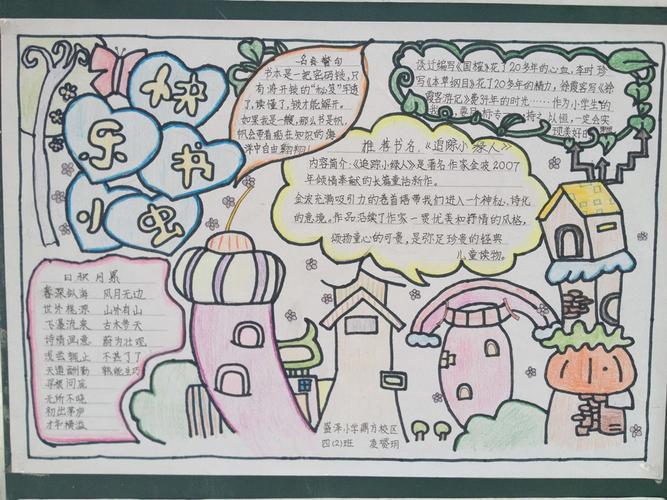 快
乐
书
小
虫
名言警句
书本是一把密码锁,只
有将开锁的“秘笈”弄透
了,读懂了,锁才能解开。
如果我是一艘,那么书是帆,
帆会带着船在知识的海
洋中自由翱翔!
谈迁编写《国榷》花了20多年的心血,李时珍
写《本草纲目》花了20多年的精力,徐霞客写《徐
霞客游记》费
年的时光……作为小学生的
我,要目标专一,持之以恒,一定会实
现美好的
推荐书名:《追踪小绿人》
内容简介:《追踪小绿人》是著名作家金波2007
年倾情奉献的长篇童话新作。
金波充满吸引力的卷首语带我们进入一个神秘,诗化
的意境。作品沿续了作家一贯优美和抒情的风格,
颂扬童心的可贵,是弥足珍贵的经典
儿童读物。
日积月累
春深似海 风月无边
世外桃源 山外有山
飞瀑流泉 古木参天
诗情画意 蔚为壮观
浅尝辄止 不甚了了
天道酬勤 熟能生巧
寻根问底
无所不晓
初出茅庐
才华横溢
盛泽小学
校区
四(2)班